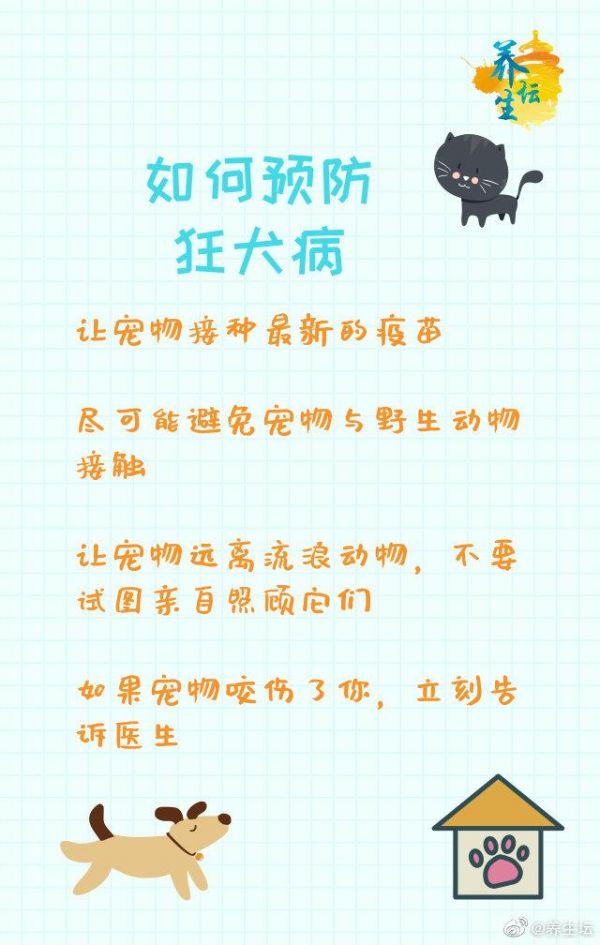 养生坛
如何预防
狂犬病
让宠物接种最新的疫苗
尽可能避免宠物与野生动物
接触
让宠物远离流浪动物，不要
试图亲自照顾它们
如果宠物咬伤了你，立刻告
诉医生
@养生坛